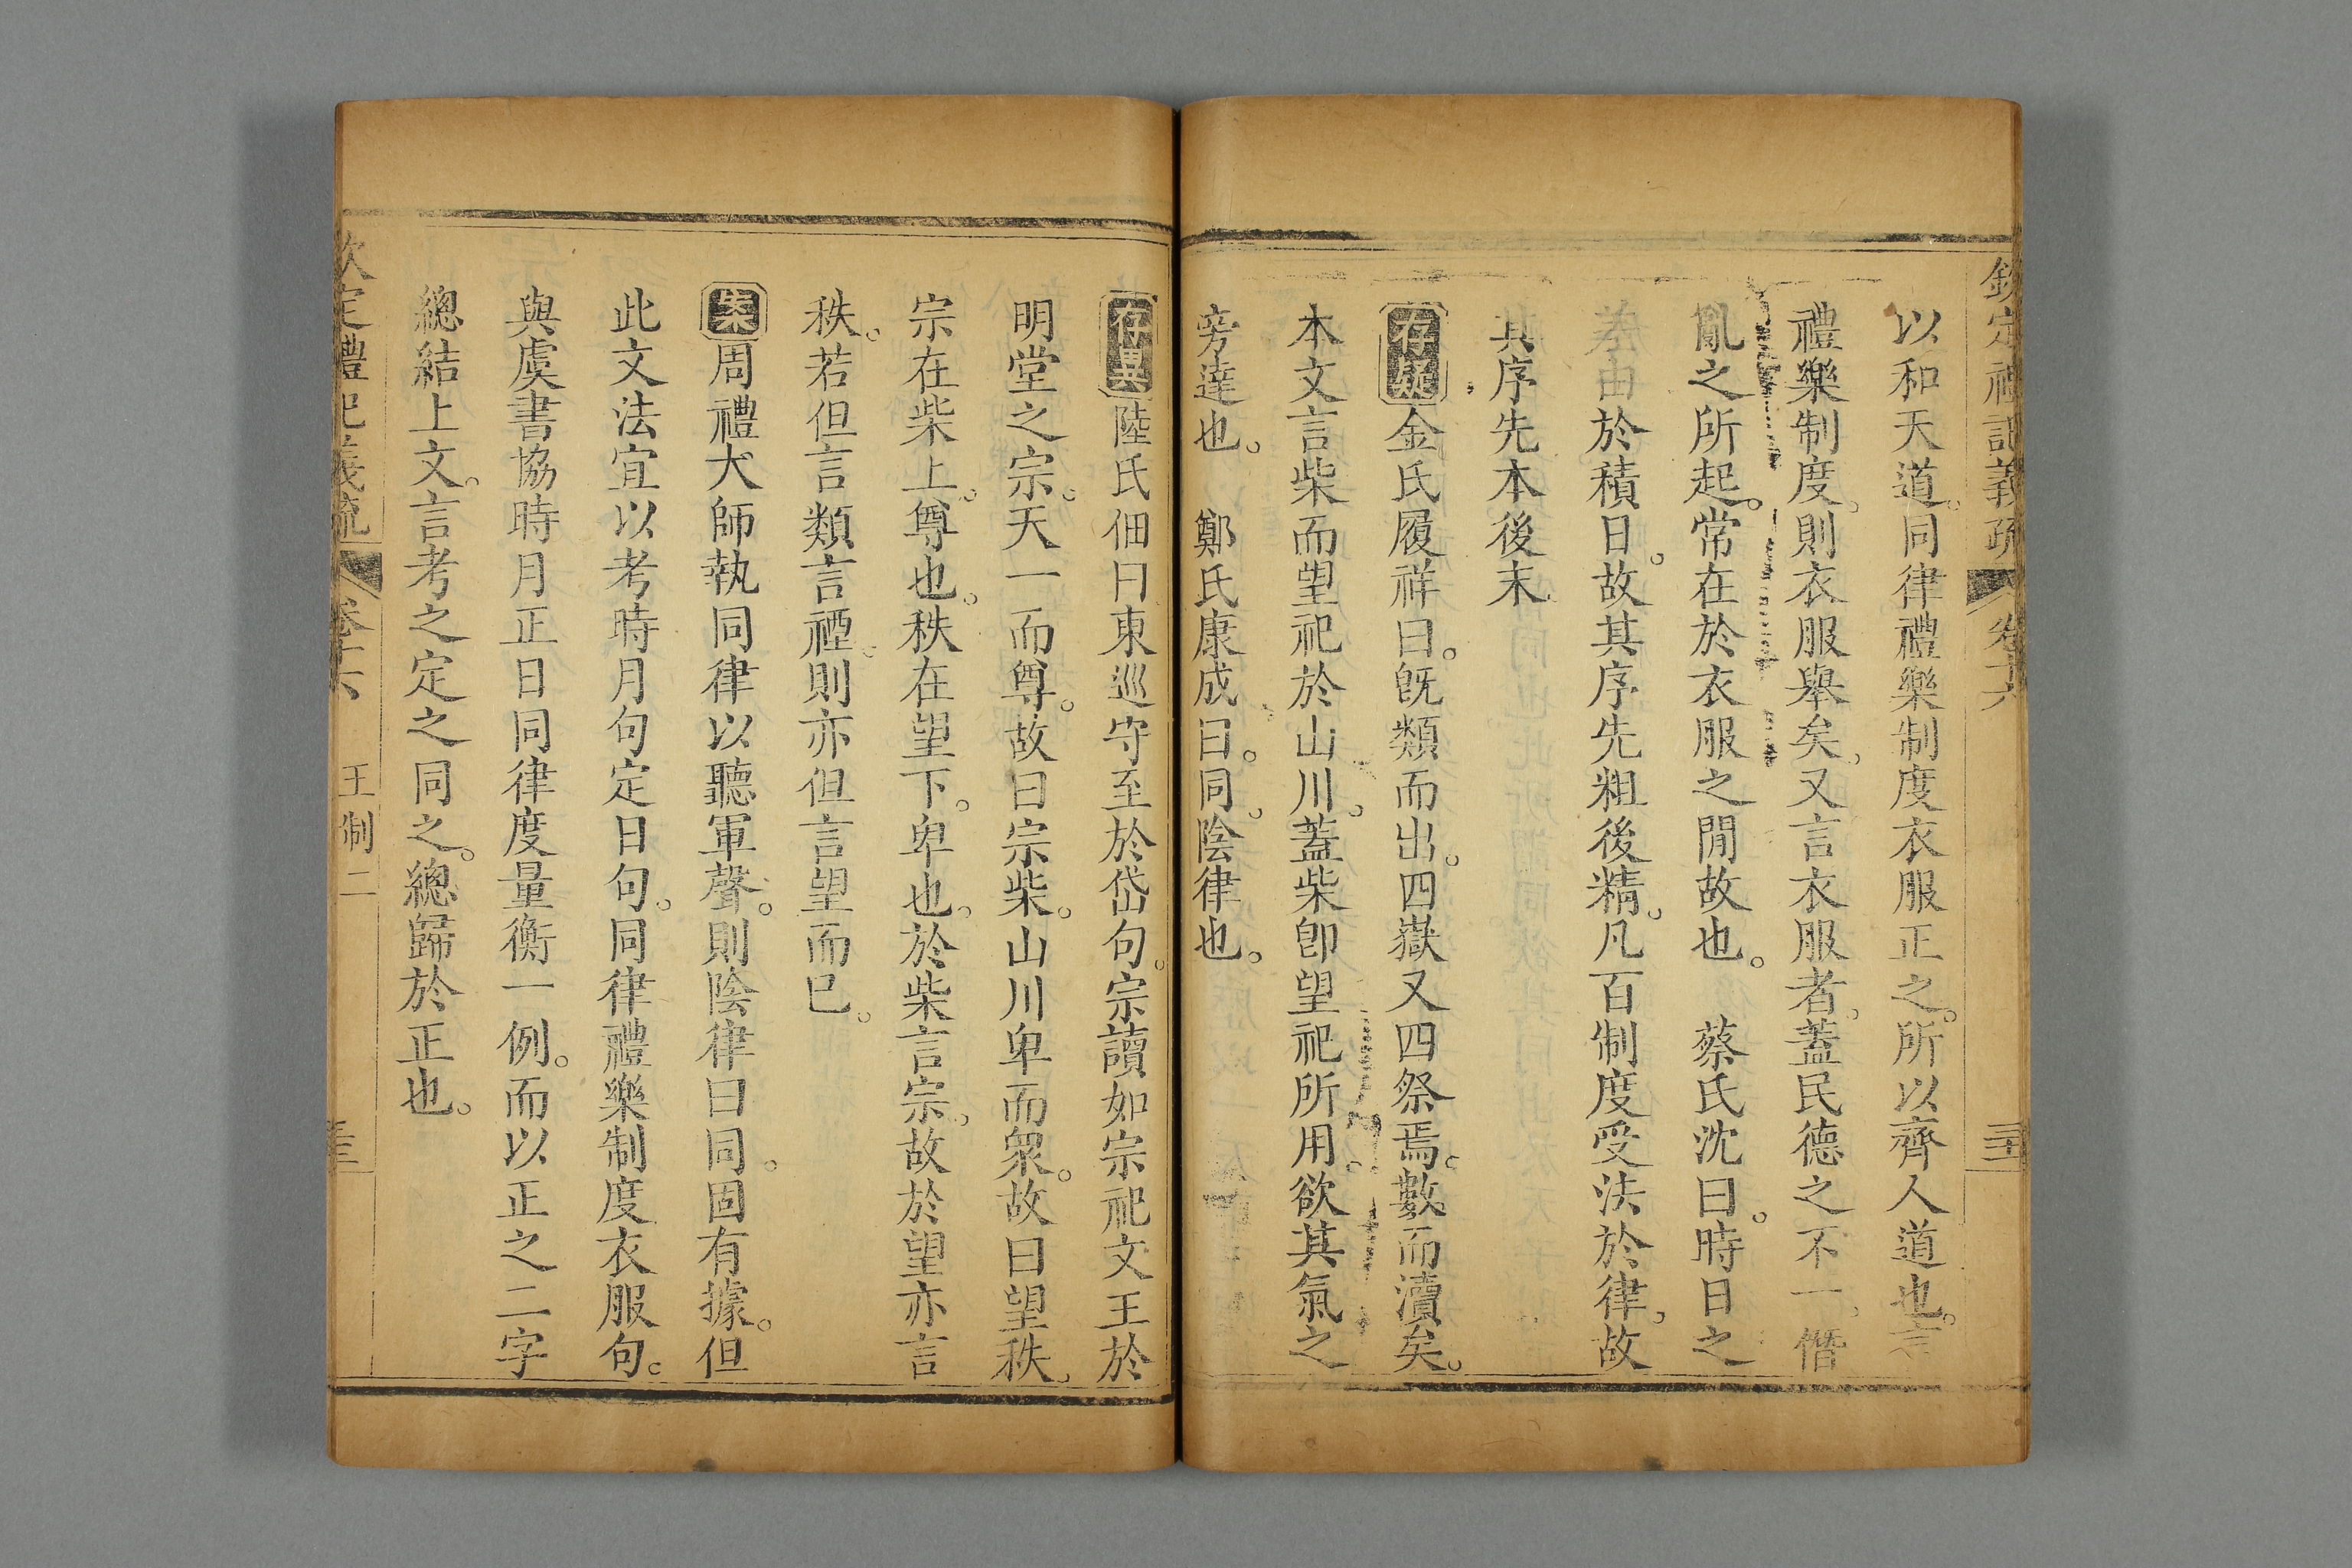 欽定禮記義疏 卷十六 三十
以和天道。同律禮樂制度衣服正之。所以齊人道也。言
禮樂制度。則衣服舉矣。又言衣服者。蓋民德之不一。僭
亂之所起。常在於衣服之閒故也。 蔡氏沈曰。時日之
差由於積日。故其序先粗後精。凡百制度受法於律。故
其序先本後末
存疑金氏履祥曰。旣類而出。四嶽又四祭焉。數而瀆矣。
本文言柴而望祀於山川。蓋柴卽望祀所用。欲其氣之
旁達也。 鄭氏康成曰。同。陰律也。
存異陸氏佃曰東巡守至於岱句。宗讀如宗祀文王於
明堂之宗。天一而尊。故曰宗柴。山川卑而衆。故曰望秩。
宗在柴上。尊也。秩在望下。卑也。於柴言宗。故於望亦言
秩。若但言類言禋。則亦但言望而已。
案周禮大師執同律以聽軍聲。則陰律曰同。固有據。但
此文法宜以考時月句定日句。同律禮樂制度衣服句。
與虞書協時月正日同律度量衡一例。而以正之二字
總結上文。言考之定之同之。總歸於正也。
欽定禮記義疏 卷十六 王制二